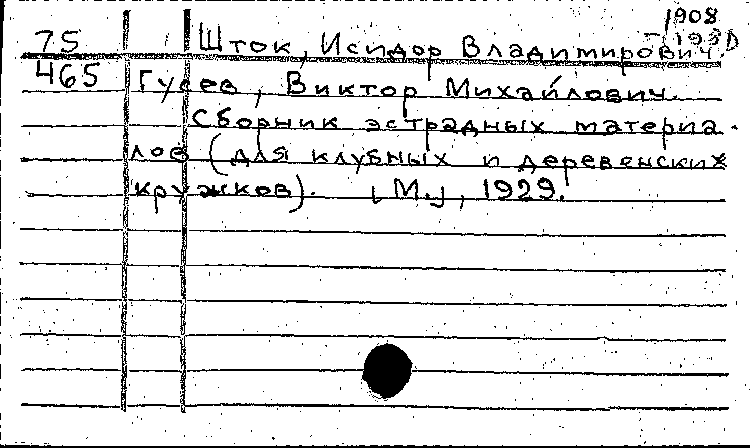 1908
75 Шток, Исидор Владимирович
465 Гусев, Виктор Михайлович.
Сборник эстрадных материа-
лов (для клубных и деревенских
кружков). [М.], 1929.